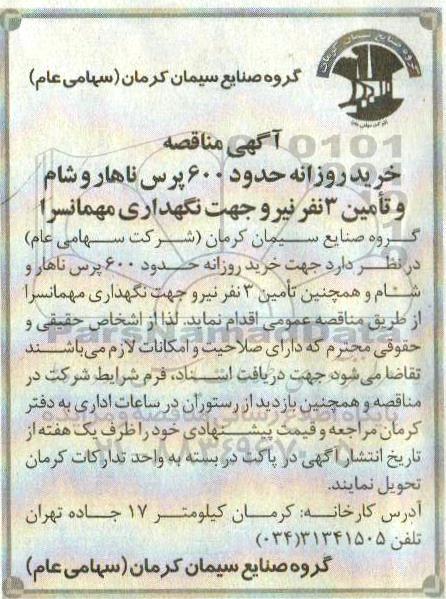 گروه صنایع سیمان کرمان
گروه صنایع سیمان کرمان (سهامی عام)
آگهی مناقصه
خرید روزانه حدود ۶۰۰ پرس ناهار و شام
و تأمین ۳ نفر نیرو جهت نگهداری مهمانسرا
گروه صنایع سیمان کرمان (شرکت سهامی عام)
در نظر دارد جهت خرید روزانه حدود ۶۰۰ پرس ناهار و
شام و همچنین تأمین ۳ نفر نیرو جهت نگهداری مهمانسرا
از طریق مناقصه عمومی اقدام نماید. لذا از اشخاص حقیقی و
حقوقی محترم که دارای صلاحیت و امکانات لازم می‌باشند
تقاضا می شود جهت دریافت اسناد، فرم شرایط شرکت در
مناقصه و همچنین بازدید از رستوران در ساعات اداری به دفتر
کرمان مراجعه و قیمت پیشنهادی خود را ظرف یک هفته از
تاریخ انتشار آگهی در پاکت در بسته به واحد تدارکات کرمان
تحویل نمایند.
آدرس کارخانه: کرمان کیلومتر ۱۷ جاده تهران
تلفن ۳۱۳۴۱۵۰۵(۰۳۴)
گروه صنایع سیمان کرمان (سهامی عام)